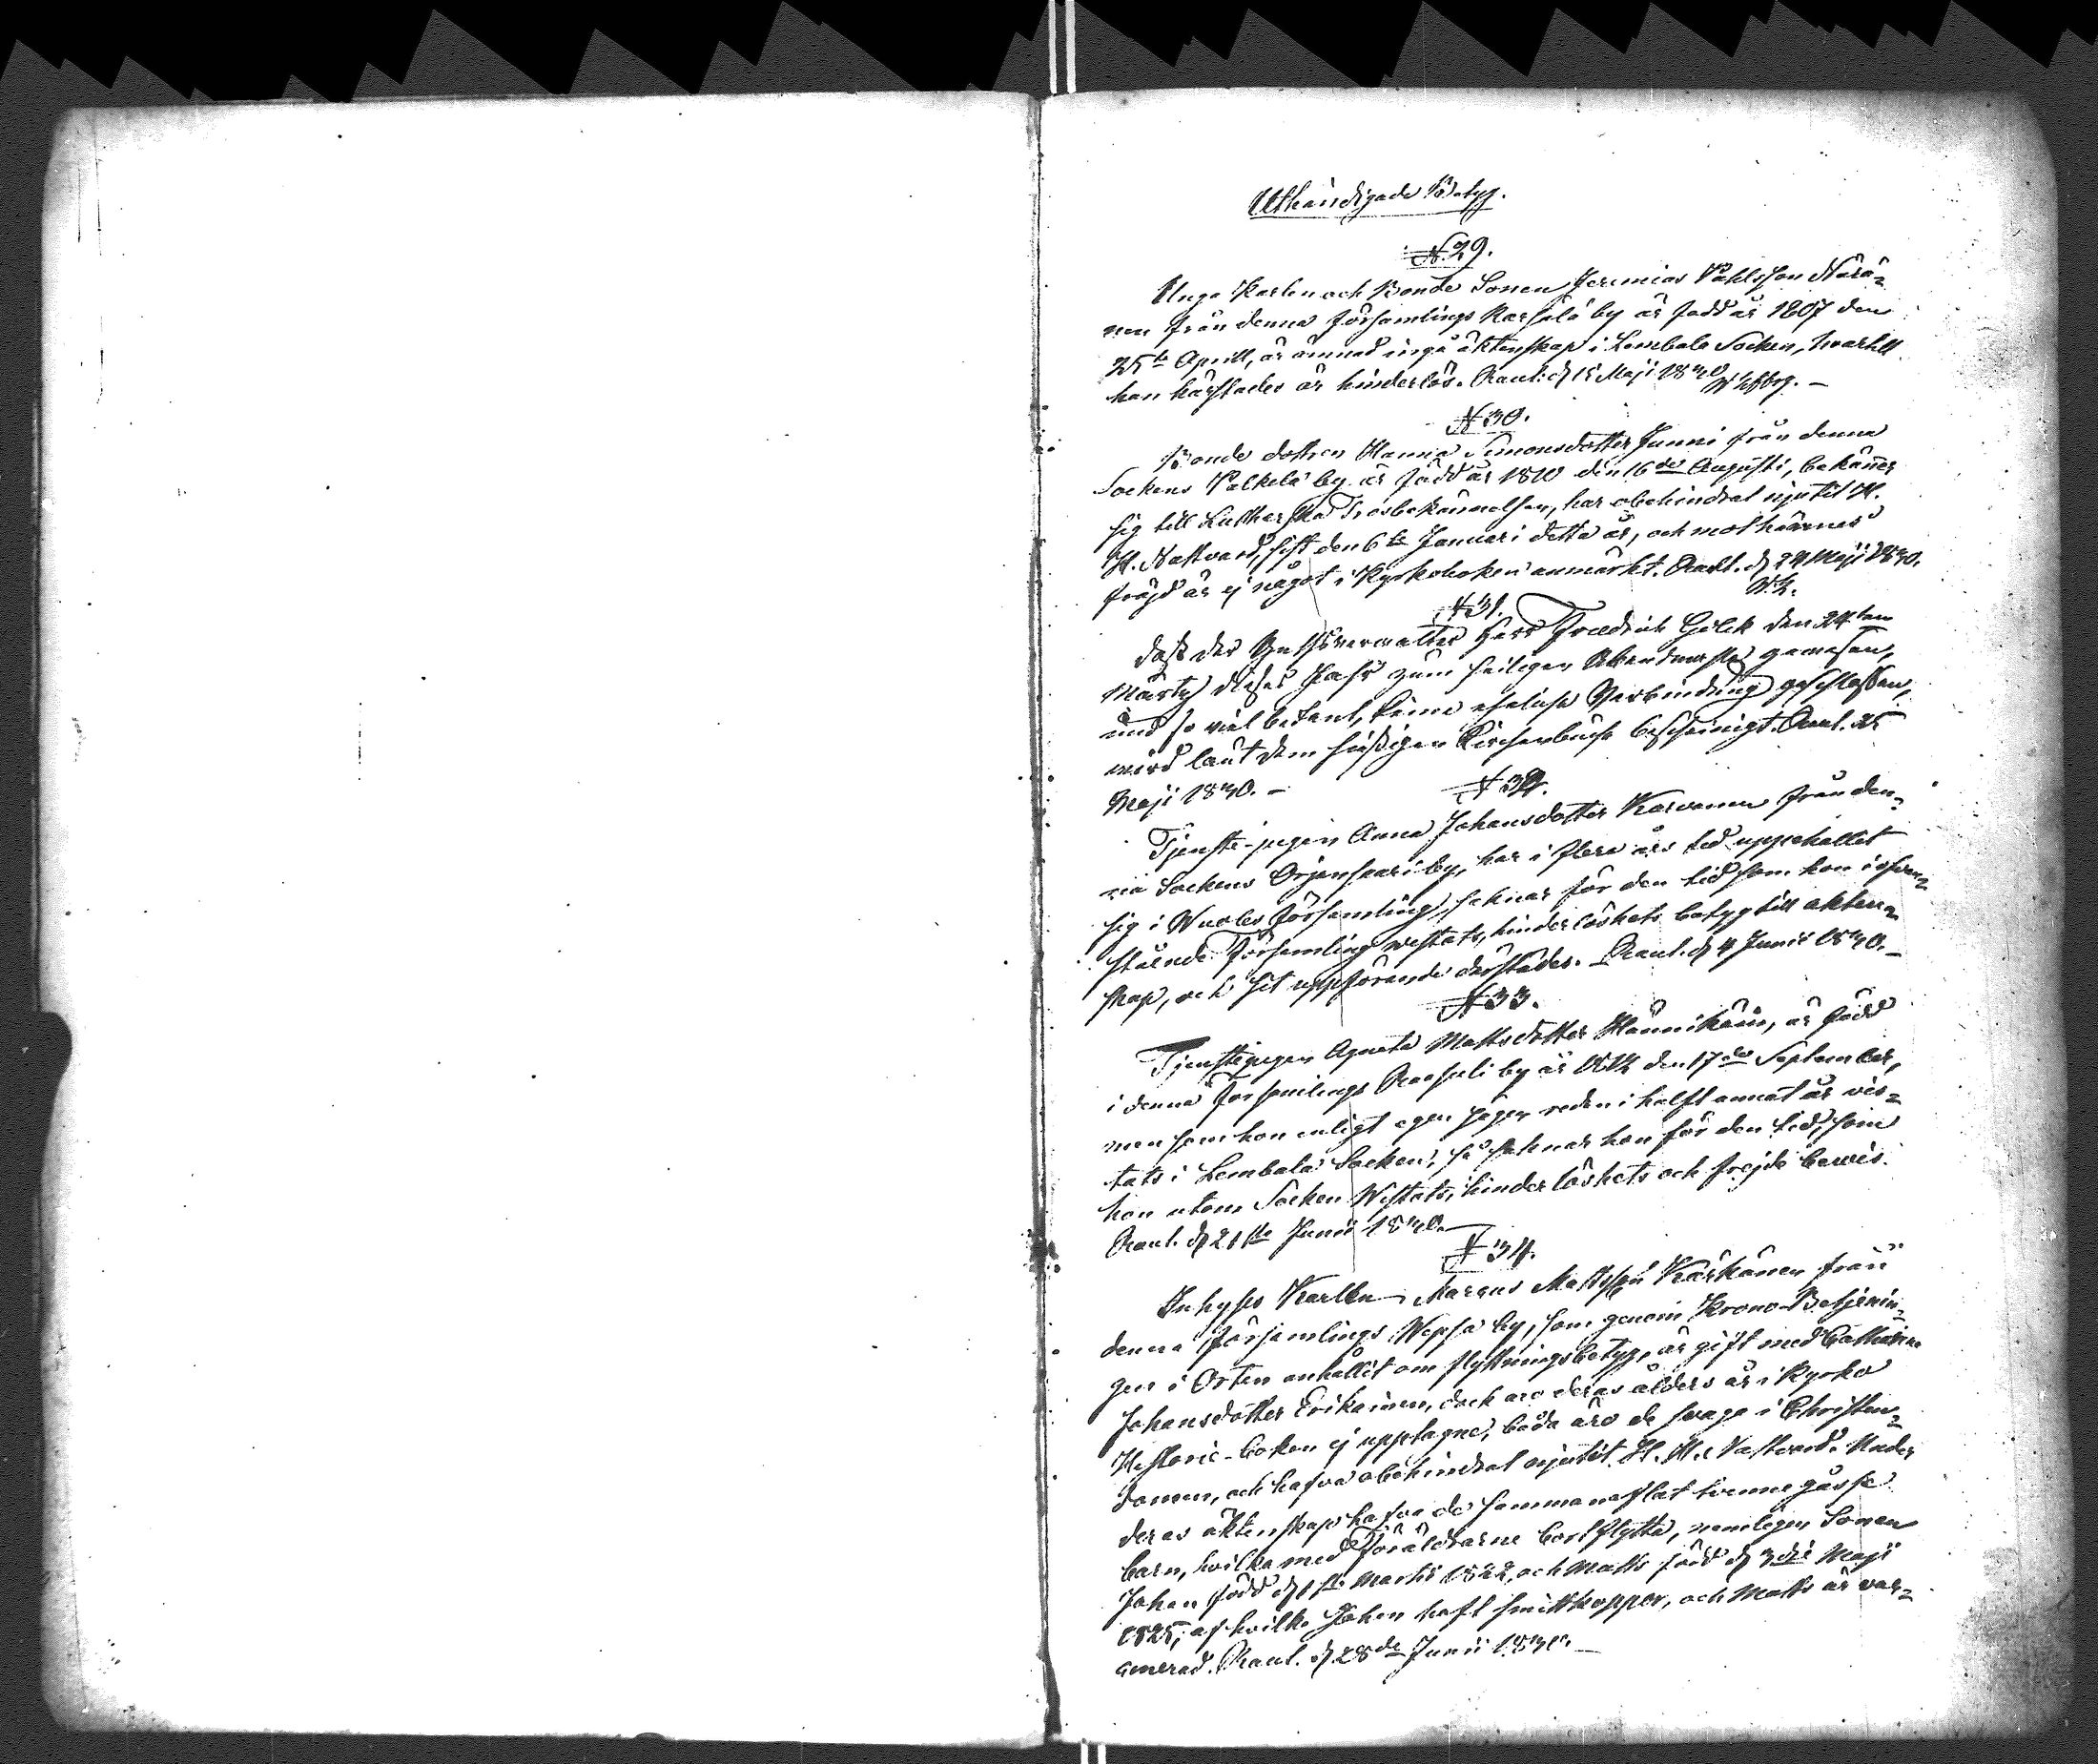 Uthändigade Betyg.
N. 29.
Unga Karlen och Bonde Sonen Jeremias Påhlsson Närä-
nen från denna församlings Karsala by är född år 1807 den
25te Aprill, är ämnad ingå äktenskap i Lembala Socken, hvartill
han härstädes är hinderlös. Raut: d 15 Maji 1830
N 30.
Bonde dottren Maria Simonsdotter Junni från denna
Sockens Palkela by är född år 1810 den 16de Augusti, bekänner
sig till Lutherska Trosbekännelsen, har obehindrat njutit H.
H. Nattvard, sist den 6te Januari detta år, och mot hännes
fräjd är ej något i Kyrkoboken anmärkt. Raut. d 24 Maji 1830.
N 31.
Daß der Gutsverwalter Herr Friedrich Golck den 24ten
Martz dieses Jahr zum heiligen Abendmahl gewesen,
und so viel bekant, keine eheliche Verbindung geschlossen,
wird laut dem hiesigen Kirchenbuche bescheinigt. Raut. 25
Maji 1830. –
N 32.
Tjenste-pigan Anna Johansdotter Karvanen från den-
na Sockens Orjansaari by, har i flera års tid uppehållit
sig i Wuoles församling, saknar för den tid som hon i ofvan-
stående Församling vistats, hinderlöshets betyg till äkten-
skap, och sit uppförande därstädes. Raut. d 4 Junii 1830. –
N 33.
Tjenstepigan Agneta Mattsdotter Hännikäin, är född
i denna församlings Raasuli by år 1812 den 17de September,
men som hon enligt egen sägen redan i halft annat år vis-
tats i Lembala Socken, så saknar hon för den tid, som
hon utom Socken Vistats, hinderlöshets och frejde bewis.
Raut. d 21ste Junii 1830. –
N 34.
Inhyses Karlen Marcus Mattsson Kärkänen från
denna församlings Wepsa by, som genom Krono-Betjenin-
gen i Orten anhållit om flyttningsbetyg, är gift med Catharina
Johansdotter Erikainen, dock äro deras ålders år i Kyrko
Historie-boken ej upptagne, båda äro de svaga i Christen-
domen, och hafva obehindrat njutit H. H. Nattvard. Under
deras äktenskap hafva de sammanaflat tvenne gosse
barn, hvilka med Föräldrarne bortflytta, nemligen Sonen
Johan född d 1ste Martii 1822, och Matts född d 3die Maji
1825, af hvilka Johan haft smittkoppor, och Matts är vac-
cinerad. Raut. d 28de Junii 1830. –